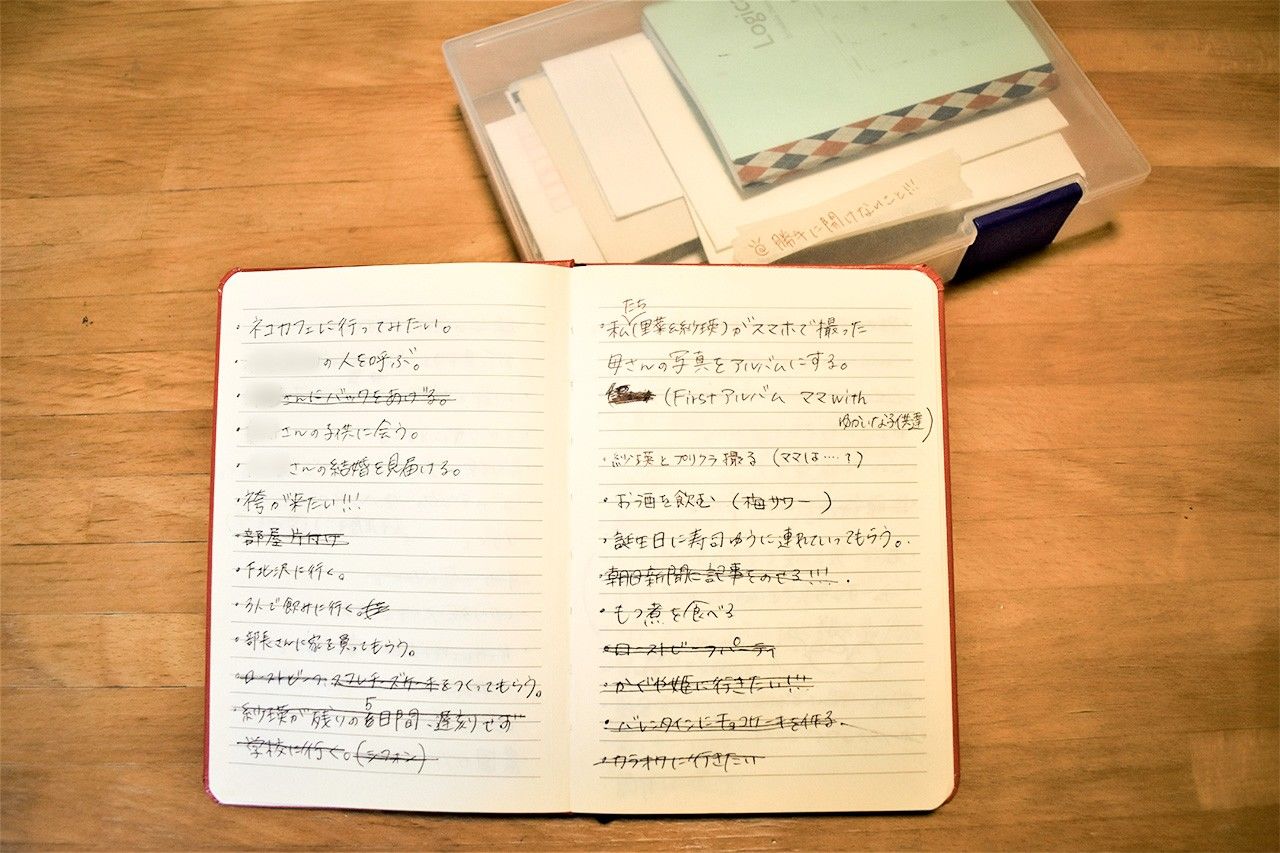 Logica
@勝手に開けないこと!!!
・ネコカフェに行ってみたい。
・の人を呼ぶ。
・さんにバックをあげる。
・さんの子供に会う。
・さんの結婚を見届ける。
・袴が来たい!!!
・部屋片付け
・下北沢に行く。
・3人で飲みに行く。
・部長さんに家を買ってもらう。
・ローストビーフ、スフレチーズケーキをつくってもらう。
・紗瑛が残りの5日間、遅刻せず
学校に行く。(シフォン)
・私たち(里菜&紗瑛)がスマホで撮った
母さんの写真をアルバムにする。
(Firstアルバム ママwith
ゆかいな子供達)
・紗瑛とプリクラ撮る(ママは‥‥?)
・お酒を飲む(梅サワー)
・誕生日に寿司ゆうに連れていってもらう。
・朝日新聞に記事をのせる!!!.
・もつ煮を食べる
・ローストビーフパーティ
・かぐや姫に行きたい!!!
・バレンタインにチョコケーキを作る.
・カラオケに行きたい